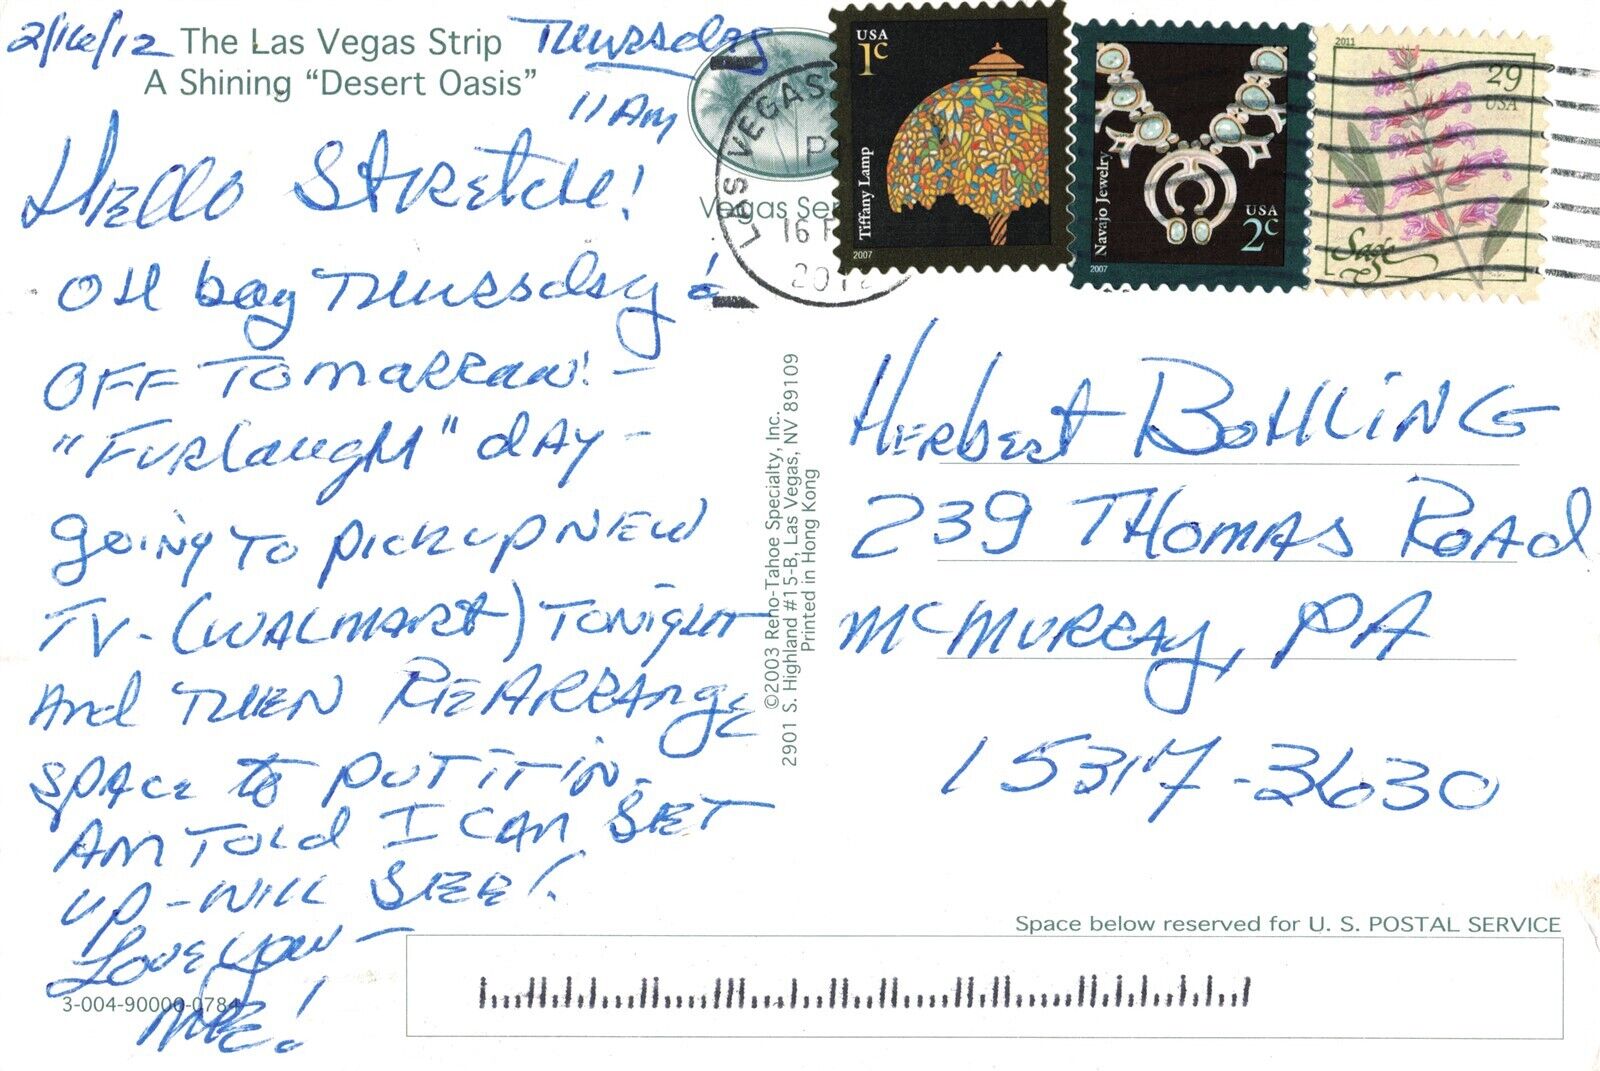 2/16/12
The Las Vegas Strip
A Shining "Desert Oasis"
Thursday
11 AM
Hello Stretch!
OH boy Thursday &
OFF Tomarraw! -
"Furlaugh" dAy -
going to pick up new
TV - (WALMART) Tonight
And Then REARRANge
spAce to put it in.
Am Told I CAn SET
up - will SEE!
Love you -
ME!
3-004-90000-0784
©2003 Reno-Tahoe Specialty, Inc.
2901 S. Highland #15-B, Las Vegas, NV 89109
Printed in Hong Kong
LAS VEGAS
16 F
2012
P
Vegas Se
USA
1c
Tiffany Lamp
2007
Navajo Jewelry
USA
2c
2007
2011
29
USA
Sage
HERbERt BOHLiNG
239 THOMAS ROAd
McMURRAy, PA
15317-3630
Space below reserved for U. S. POSTAL SERVICE